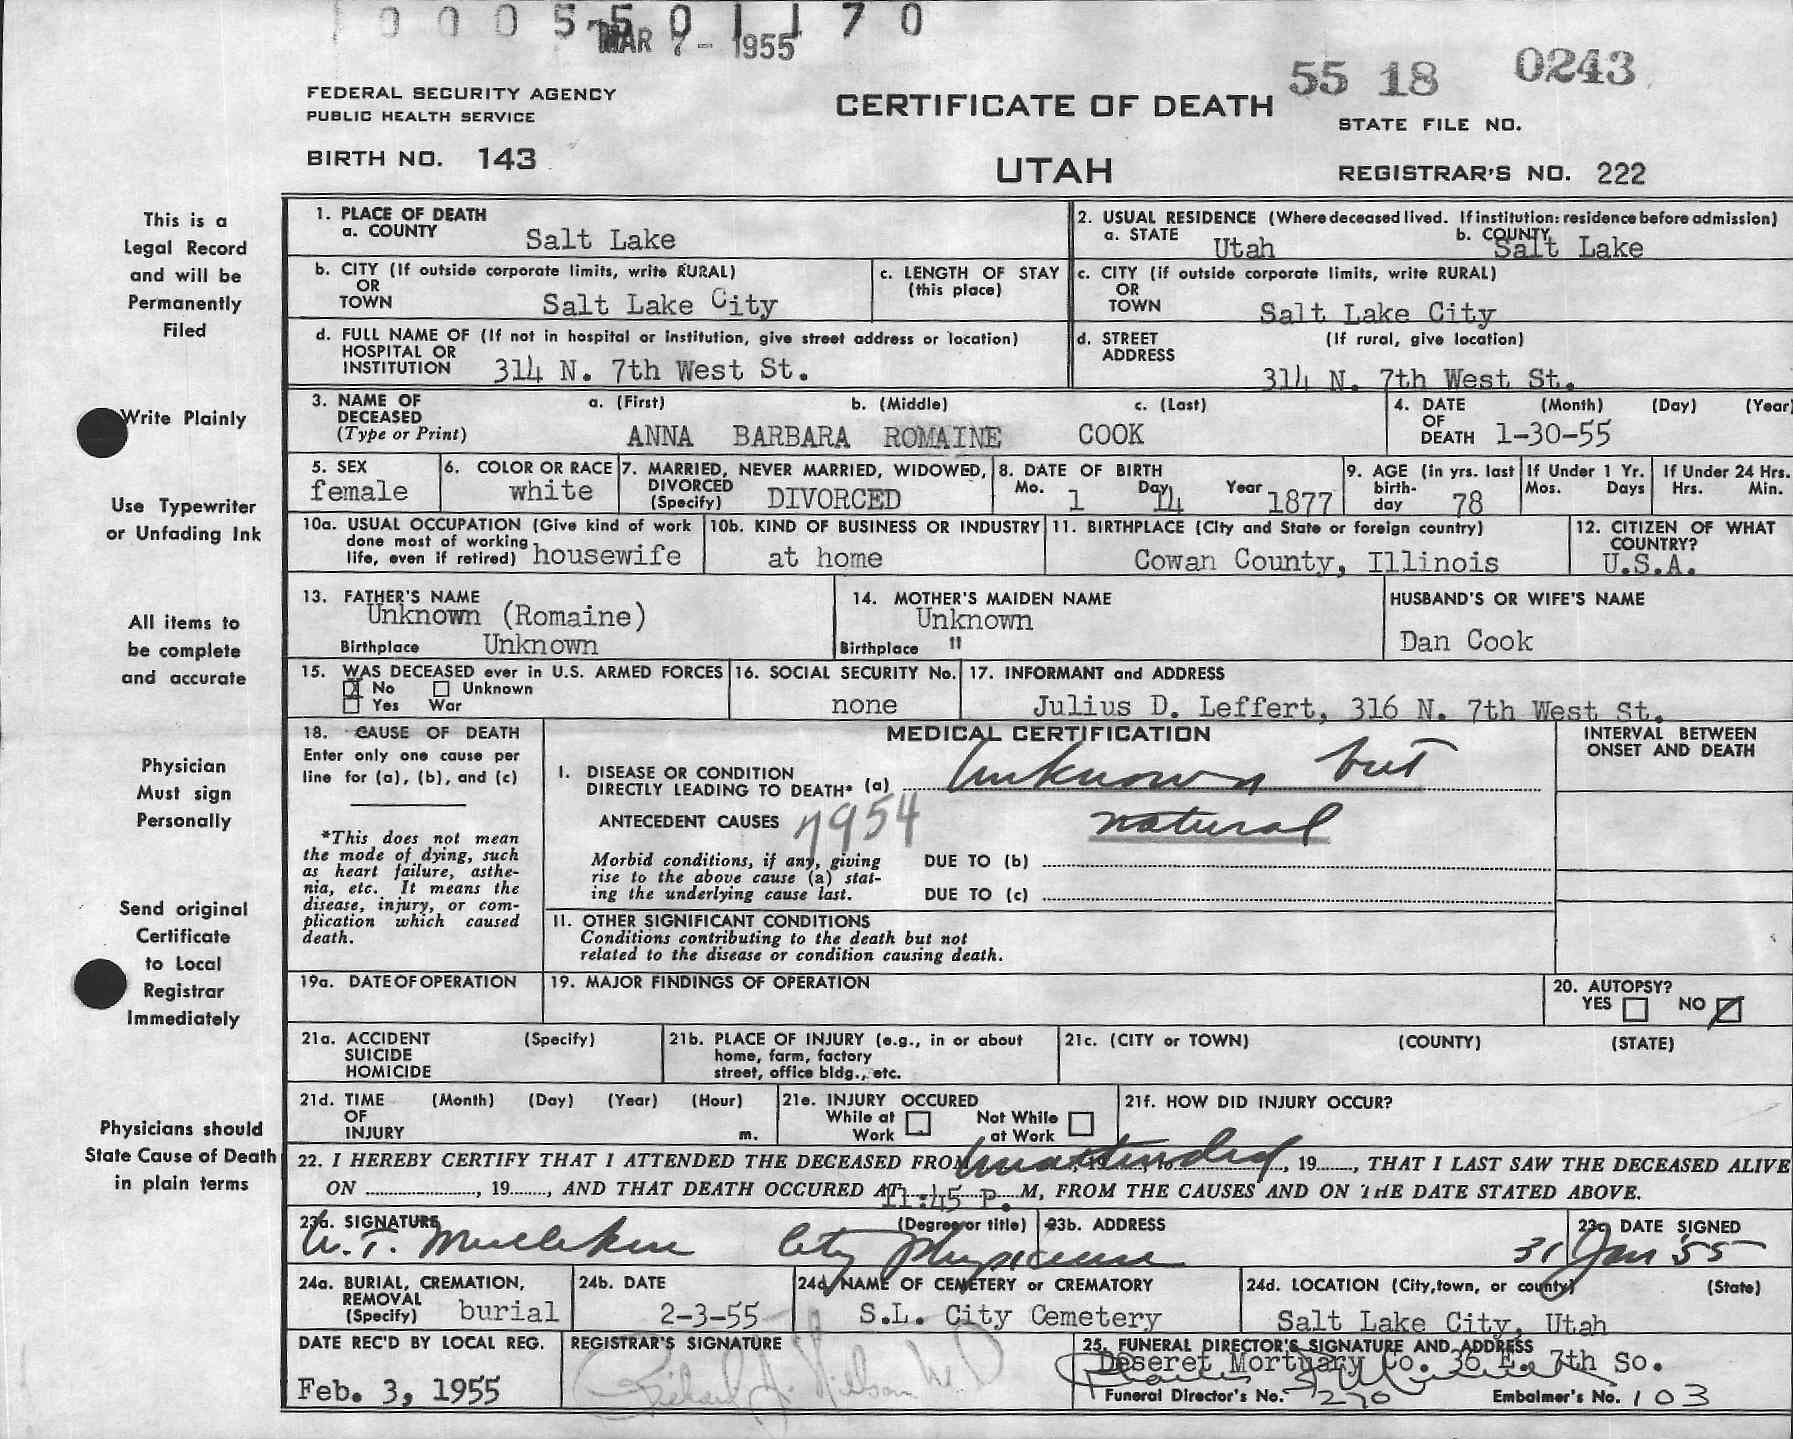 0 0 0 5 5 0 1 1 7 0
MAR 7 - 1955
55 18 0243
FEDERAL SECURITY AGENCY
PUBLIC HEALTH SERVICE
CERTIFICATE OF DEATH
STATE FILE NO.
BIRTH NO. 143
UTAH
REGISTRAR'S NO. 222
This is a
Legal Record
and will be
Permanently
Filed
Write Plainly
Use Typewriter
or Unfading Ink
All items to
be complete
and accurate
Physician
Must sign
Personally
Send original
Certificate
to Local
Registrar
Immediately
Physicians should
State Cause of Death
in plain terms
1. PLACE OF DEATH
a. COUNTY Salt Lake
2. USUAL RESIDENCE (Where deceased lived. If institution: residence before admission)
a. STATE Utah b. COUNTY Salt Lake
b. CITY (If outside corporate limits, write RURAL)
OR
TOWN Salt Lake City
c. LENGTH OF STAY
(this place)
c. CITY (if outside corporate limits, write RURAL)
OR
TOWN Salt Lake City
d. FULL NAME OF (If not in hospital or institution, give street address or location)
HOSPITAL OR
INSTITUTION 314 N. 7th West St.
d. STREET (If rural, give location)
ADDRESS
314 N. 7th West St.
3. NAME OF a. (First) b. (Middle) c. (Last)
DECEASED
(Type or Print) ANNA BARBARA ROMAINE COOK
4. DATE (Month) (Day) (Year)
OF
DEATH 1-30-55
5. SEX
female
6. COLOR OR RACE
white
7. MARRIED, NEVER MARRIED, WIDOWED,
DIVORCED
(Specify) DIVORCED
8. DATE OF BIRTH
Mo. 1 Day 14 Year 1877
9. AGE (in yrs. last
birth-
day 78
If Under 1 Yr.
Mos. Days
If Under 24 Hrs.
Hrs. Min.
10a. USUAL OCCUPATION (Give kind of work
done most of working
life, even if retired) housewife
10b. KIND OF BUSINESS OR INDUSTRY
at home
11. BIRTHPLACE (City and State or foreign country)
Cowan County, Illinois
12. CITIZEN OF WHAT
COUNTRY?
U.S.A.
13. FATHER'S NAME
Unknown (Romaine)
Birthplace Unknown
14. MOTHER'S MAIDEN NAME
Unknown
Birthplace "
HUSBAND'S OR WIFE'S NAME
Dan Cook
15. WAS DECEASED ever in U.S. ARMED FORCES
X No Unknown
Yes War
16. SOCIAL SECURITY No.
none
17. INFORMANT and ADDRESS
Julius D. Leffert, 316 N. 7th West St.
18. CAUSE OF DEATH
Enter only one cause per
line for (a), (b), and (c)
*This does not mean
the mode of dying, such
as heart failure, asthe-
nia, etc. It means the
disease, injury, or com-
plication which caused
death.
MEDICAL CERTIFICATION
I. DISEASE OR CONDITION
DIRECTLY LEADING TO DEATH* (a) Unknown but
ANTECEDENT CAUSES 7954 natural
Morbid conditions, if any, giving
rise to the above cause (a) stat-
ing the underlying cause last.
DUE TO (b)
DUE TO (c)
II. OTHER SIGNIFICANT CONDITIONS
Conditions contributing to the death but not
related to the disease or condition causing death.
INTERVAL BETWEEN
ONSET AND DEATH
19a. DATE OF OPERATION
19. MAJOR FINDINGS OF OPERATION
20. AUTOPSY?
YES NO
21a. ACCIDENT (Specify)
SUICIDE
HOMICIDE
21b. PLACE OF INJURY (e.g., in or about
home, farm, factory
street, office bldg., etc.
21c. (CITY or TOWN) (COUNTY) (STATE)
21d. TIME (Month) (Day) (Year) (Hour)
OF
INJURY m.
21e. INJURY OCCURED
While at Not While
Work at Work
21f. HOW DID INJURY OCCUR?
22. I HEREBY CERTIFY THAT I ATTENDED THE DECEASED FROM unattended, 19......, THAT I LAST SAW THE DECEASED ALIVE
ON ..................., 19......, AND THAT DEATH OCCURED AT 11:45 P. M, FROM THE CAUSES AND ON THE DATE STATED ABOVE.
23a. SIGNATURE (Degree or title) 23b. ADDRESS 23c. DATE SIGNED
City physician 31 Jan 55
24a. BURIAL, CREMATION,
REMOVAL
(Specify) burial
24b. DATE
2-3-55
24c. NAME OF CEMETERY or CREMATORY
S.L. City Cemetery
24d. LOCATION (City, town, or county) (State)
Salt Lake City, Utah
DATE REC'D BY LOCAL REG.
Feb. 3, 1955
REGISTRAR'S SIGNATURE
25. FUNERAL DIRECTOR'S SIGNATURE AND ADDRESS
Deseret Mortuary Co. 36 E. 7th So.
Funeral Director's No. 270 Embalmer's No. 103